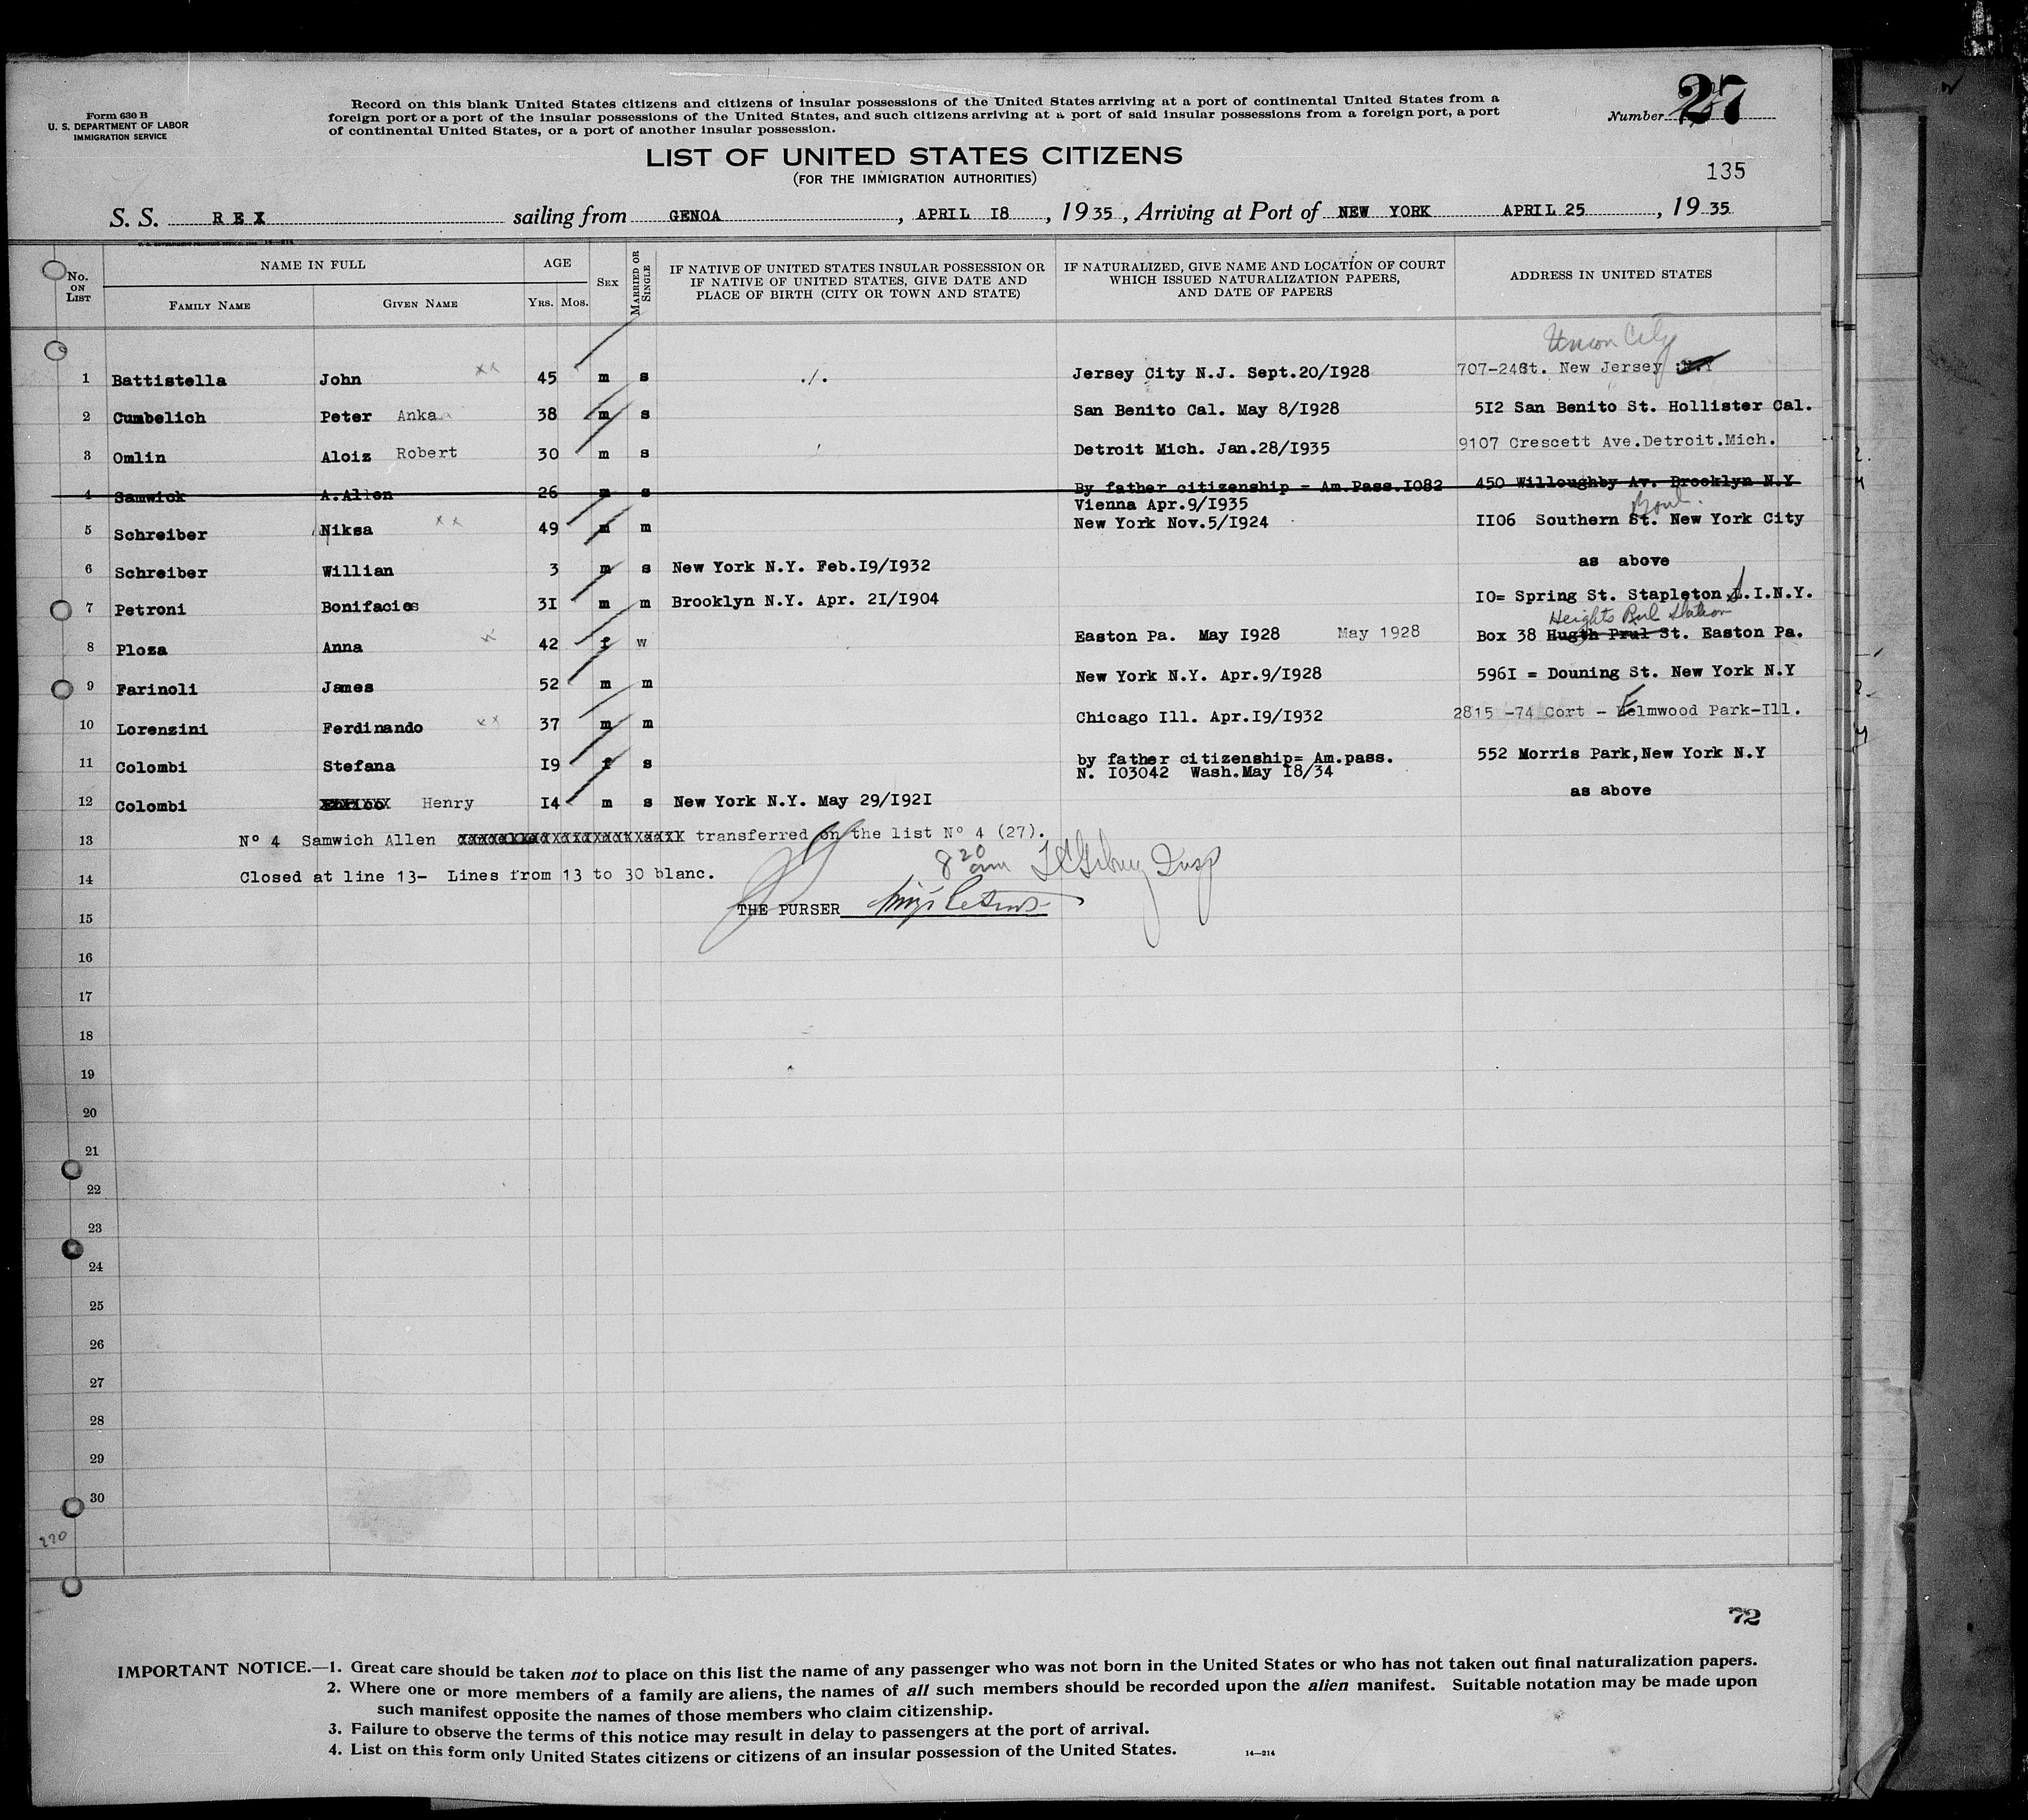 Form 630 B
U. S. DEPARTMENT OF LABOR
IMMIGRATION SERVICE
Record on this blank United States citizens and citizens of insular possessions of the United States arriving at a port of continental United States from a
foreign port or a port of the insular possessions of the United States, and such citizens arriving at a port of said insular possessions from a foreign port, a port
of continental United States, or a port of another insular possession.
Number 27
LIST OF UNITED STATES CITIZENS
(FOR THE IMMIGRATION AUTHORITIES)
135
S. S. REX sailing from GENOA, APRIL I8, 1935, Arriving at Port of NEW YORK APRIL 25, 1935
No. ON LIST
NAME IN FULL
FAMILY NAME GIVEN NAME
AGE
YRS. MOS.
SEX
MARRIED OR SINGLE
IF NATIVE OF UNITED STATES INSULAR POSSESSION OR
IF NATIVE OF UNITED STATES, GIVE DATE AND
PLACE OF BIRTH (CITY OR TOWN AND STATE)
IF NATURALIZED, GIVE NAME AND LOCATION OF COURT
WHICH ISSUED NATURALIZATION PAPERS,
AND DATE OF PAPERS
ADDRESS IN UNITED STATES
Union City
1 Battistella John xx 45 m s ./. Jersey City N.J. Sept.20/I928 707-24St. New Jersey N.Y
2 Cumbelich Peter Anka 38 m s San Benito Cal. May 8/I928 5I2 San Benito St. Hollister Cal.
3 Omlin Alois Robert 30 m s Detroit Mich. Jan.28/I935 9107 Crescett Ave.Detroit.Mich.
4 Samwick A.Allen 26 m s By father citizenship = Am.Pass.I082 450 Willoughby Av. Brooklyn N.Y
Vienna Apr.9/I935
Boul.
5 Schreiber Niksa xx 49 m m New York Nov.5/I924 II06 Southern St. New York City
6 Schreiber Willian 3 m s New York N.Y. Feb.I9/I932 as above
7 Petroni Bonifacios 3I m m Brooklyn N.Y. Apr. 2I/I904 IO= Spring St. Stapleton S.I.N.Y.
Heights Station
8 Ploza Anna 42 f w Easton Pa. May I928 May 1928 Box 38 Hugth Prul St. Easton Pa.
9 Farinoli James 52 m m New York N.Y. Apr.9/I928 596I = Douning St. New York N.Y
10 Lorenzini Ferdinando xx 37 m m Chicago Ill. Apr.I9/I932 2815 -74 Cort - Elmwood Park-Ill.
11 Colombi Stefana I9 f s by father citizenship= Am.pass. 552 Morris Park,New York N.Y
N. I03042 Wash.May I8/34
12 Colombi Henry I4 m s New York N.Y. May 29/I92I as above
13 Nº 4 Samwich Allen transferred on the list Nº 4 (27).
8 20 am
14 Closed at line 13- Lines from 13 to 30 blanc.
15 THE PURSER
16
17
18
19
20
21
22
23
24
25
26
27
28
29
30
270
72
IMPORTANT NOTICE.—1. Great care should be taken not to place on this list the name of any passenger who was not born in the United States or who has not taken out final naturalization papers.
2. Where one or more members of a family are aliens, the names of all such members should be recorded upon the alien manifest. Suitable notation may be made upon
such manifest opposite the names of those members who claim citizenship.
3. Failure to observe the terms of this notice may result in delay to passengers at the port of arrival.
4. List on this form only United States citizens or citizens of an insular possession of the United States.
14—214